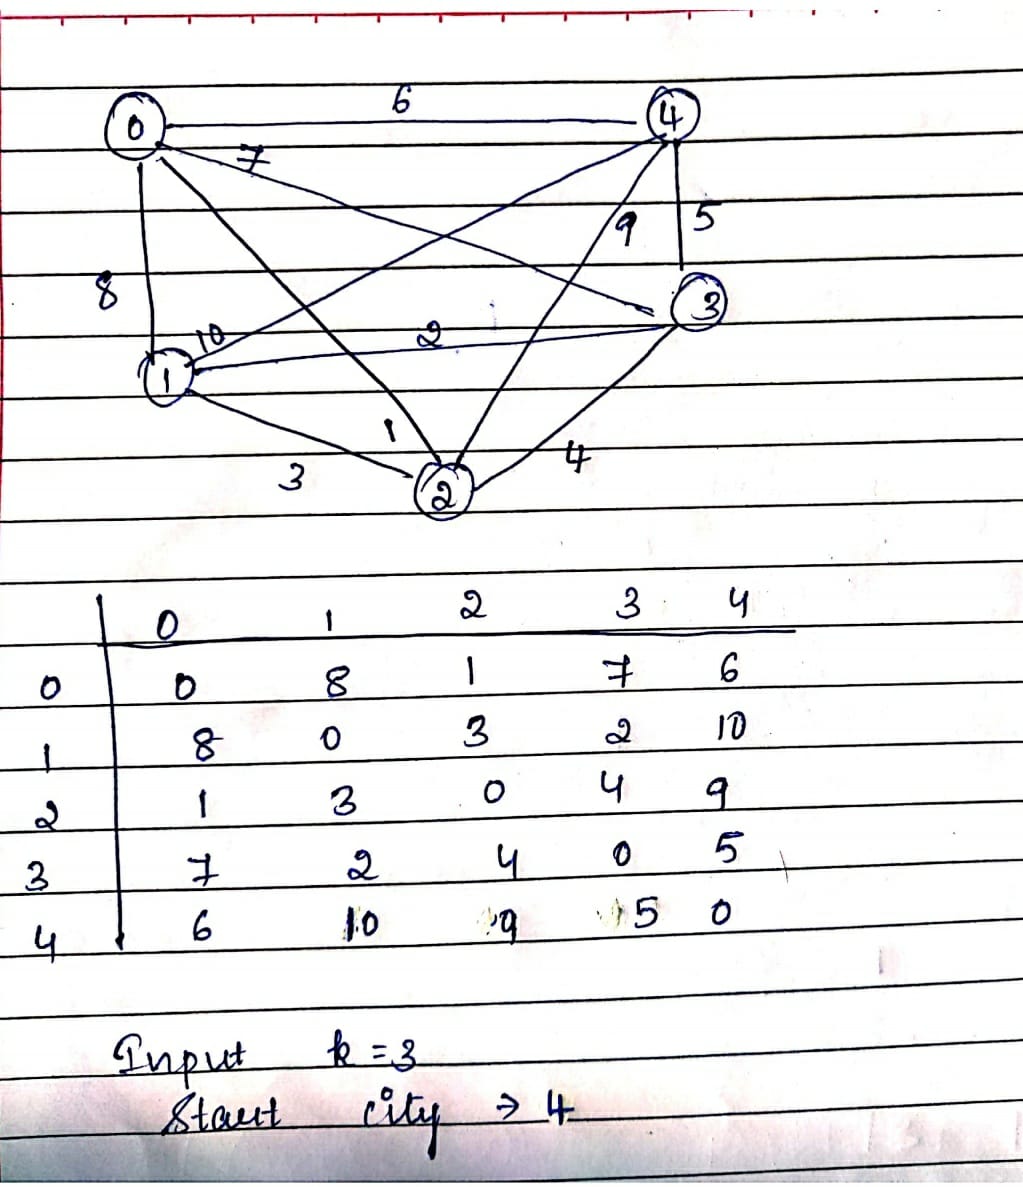 6
0 4
7
9 5
8 3
10 2
1
1
3 4
2
0 1 2 3 4
0 0 8 1 7 6
1 8 0 3 2 10
2 1 3 0 4 9
3 7 2 4 0 5
4 6 10 9 5 0
Input k = 3
Start city → 4